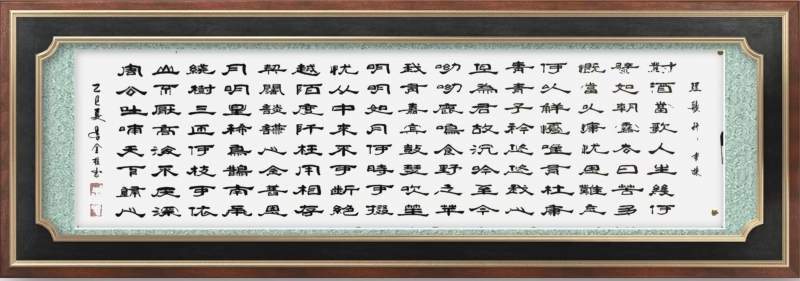 短歌行·曹操
對酒當歌人生幾何
譬如朝露去日苦多
慨當以慷忧思難忘
何以解憂唯有杜康
青青子衿悠悠我心
但為君故沉吟至今
呦呦鹿鳴食野之苹
我有嘉賓鼓瑟吹笙
明明如月何時可掇
忧从中來不可斷絕
越陌度阡枉用相存
契闊談讌心念舊恩
月明星稀烏鵲南飛
繞樹三匝何枝可依
山不厭高海不厭深
周公吐哺天下歸心
乙巳夏